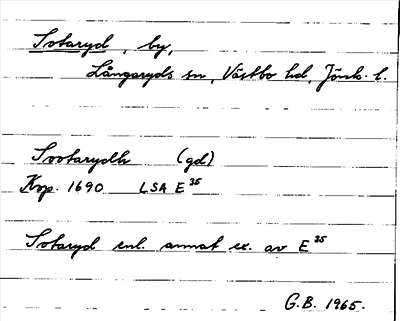 Sotaryd, by,
Långaryds sn, Västbo hd, Jönk. l.
Sootarydh (gd)
Kop. 1690 LSA E³⁵
Sotaryd enl. annat ex. av E³⁵
G.B. 1965.